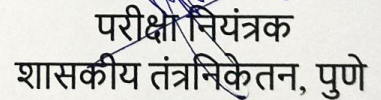 परीक्षा नियंत्रक
शासकीय तंत्रनिकेतन, पुणे